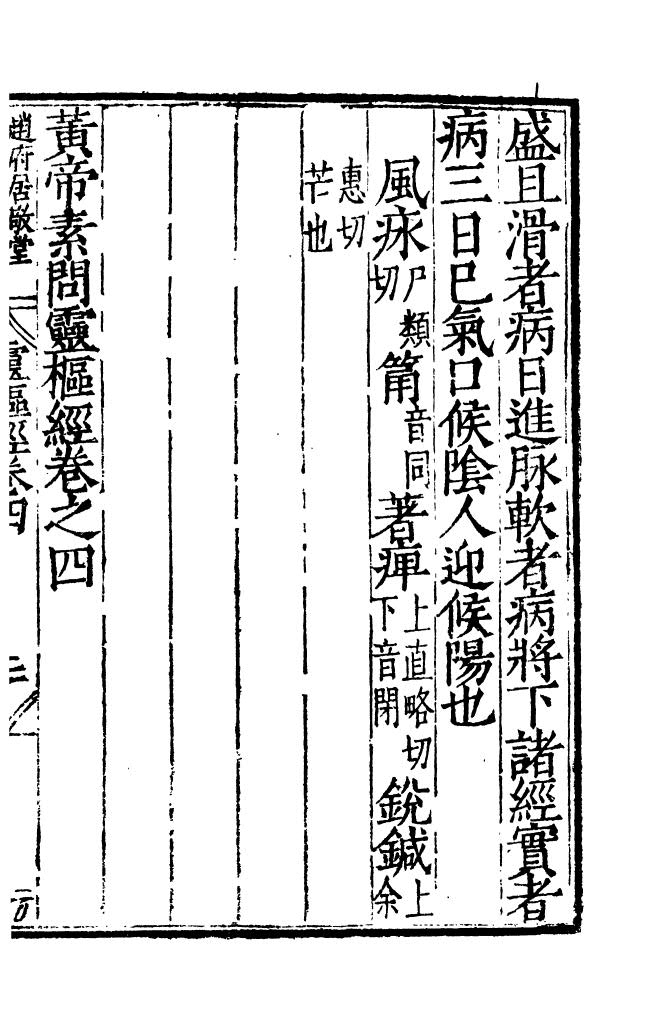 盛且滑者病日進脉軟者病將下諸經實者
病三日巳氣口候陰人迎候陽也
風㽷尸類切筩音同著痺上直略切下音閉鋭鍼上余
惠切芒也
黃帝素問靈樞經卷之四
趙府居敬堂 靈樞經卷四